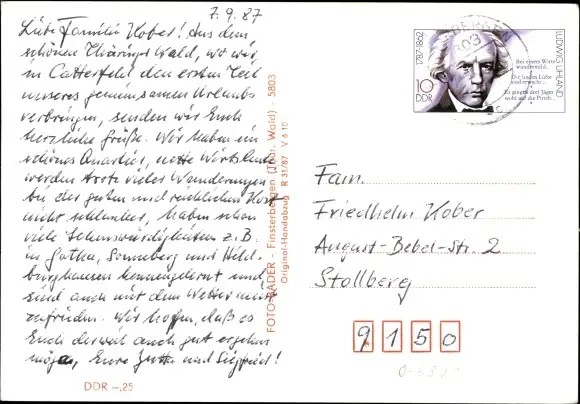 7.9.87
Liebe Familie Kober! Aus dem
schönen Thüringer Wald, wo wir
in Catterfeld den ersten Teil
unseres gemeinsamen Urlaubs
verbringen, senden wir Euch
herzliche Grüße. Wir haben ein
schönes Quartier, nette Wirtsleute,
werden trotz vieler Wanderungen
bei der guten und reichlichen Kost
nicht schlanker, haben schon
viele Sehenswürdigkeiten z.B.
in Gotha, Sonneberg und Hild-
burghausen kennengelernt und
sind auch mit dem Wetter nicht
zufrieden. Wir hoffen, daß es
Euch derweil auch gut ergehen
möge, Eure Jutta und Siegfried!
DDR -,25
FOTO-RADER - Finsterbergen (Thür. Wald) - 5803
Original-Handabzug R 31/87 V 6 10
1787-1862
10
DDR
LUDWIG UHLAND
Bei einem Wirte
wundermild..
Die linden Lüfte
sind erwacht..
Es gingen drei Jäger
wohl auf die Pirsch..
Fam.
Friedhelm Kober
August-Bebel-Str. 2
Stollberg
9150